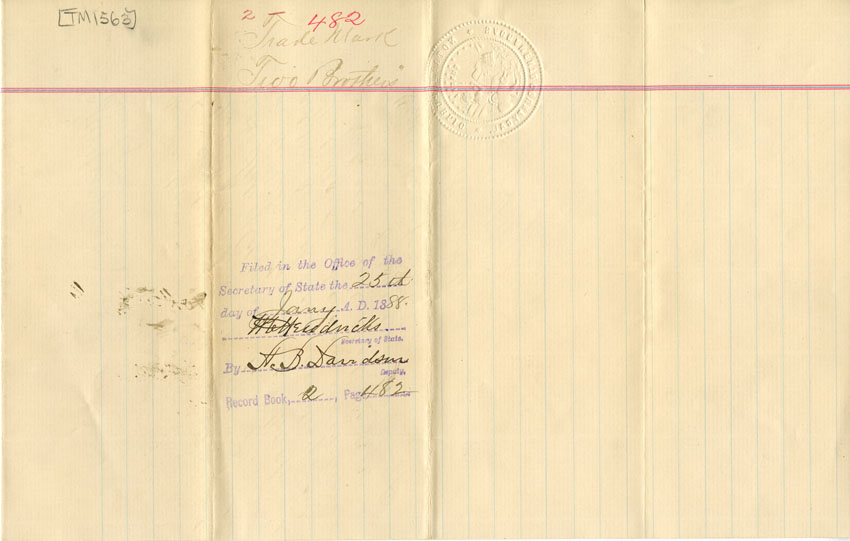 [TM1563]
2 — 482
Trade Mark
Two Brothers
Filed in the Office of the
Secretary of State the 25th
day of Jany A. D. 1888.
W C Hendricks
Secretary of State.
By A. B. Davidson
Deputy.
Record Book, 2, Page 482